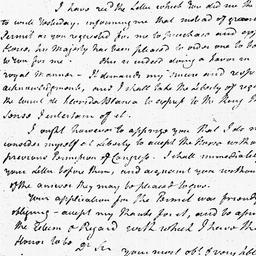 I have recd the Letter which you did me the
to write Yesterday. informing me that instead of
Permit as you requested for me to purchase and
Horse, his Majesty has been pleased to order one to be
to You for me. This is indeed doing a favor in
royal Manner. It demands my sincere and
acknowledgments, and I shall take the Liberty of
the Count de Florida Blanca to express to the King
Sense I entertain of it.
I ought however to apprize you that I do n
consider myself at Liberty to accept the Horse witho
previous Permission of Congress. I shall immediatel
your Letter before them, and acquaint you withou
of the answer they may be pleased to give.
Your application for the Permit was friendly
obliging. accept my thanks for it, and be
the Esteem & Regard with which I have the
Honor to be Dr Sir
your most obt &